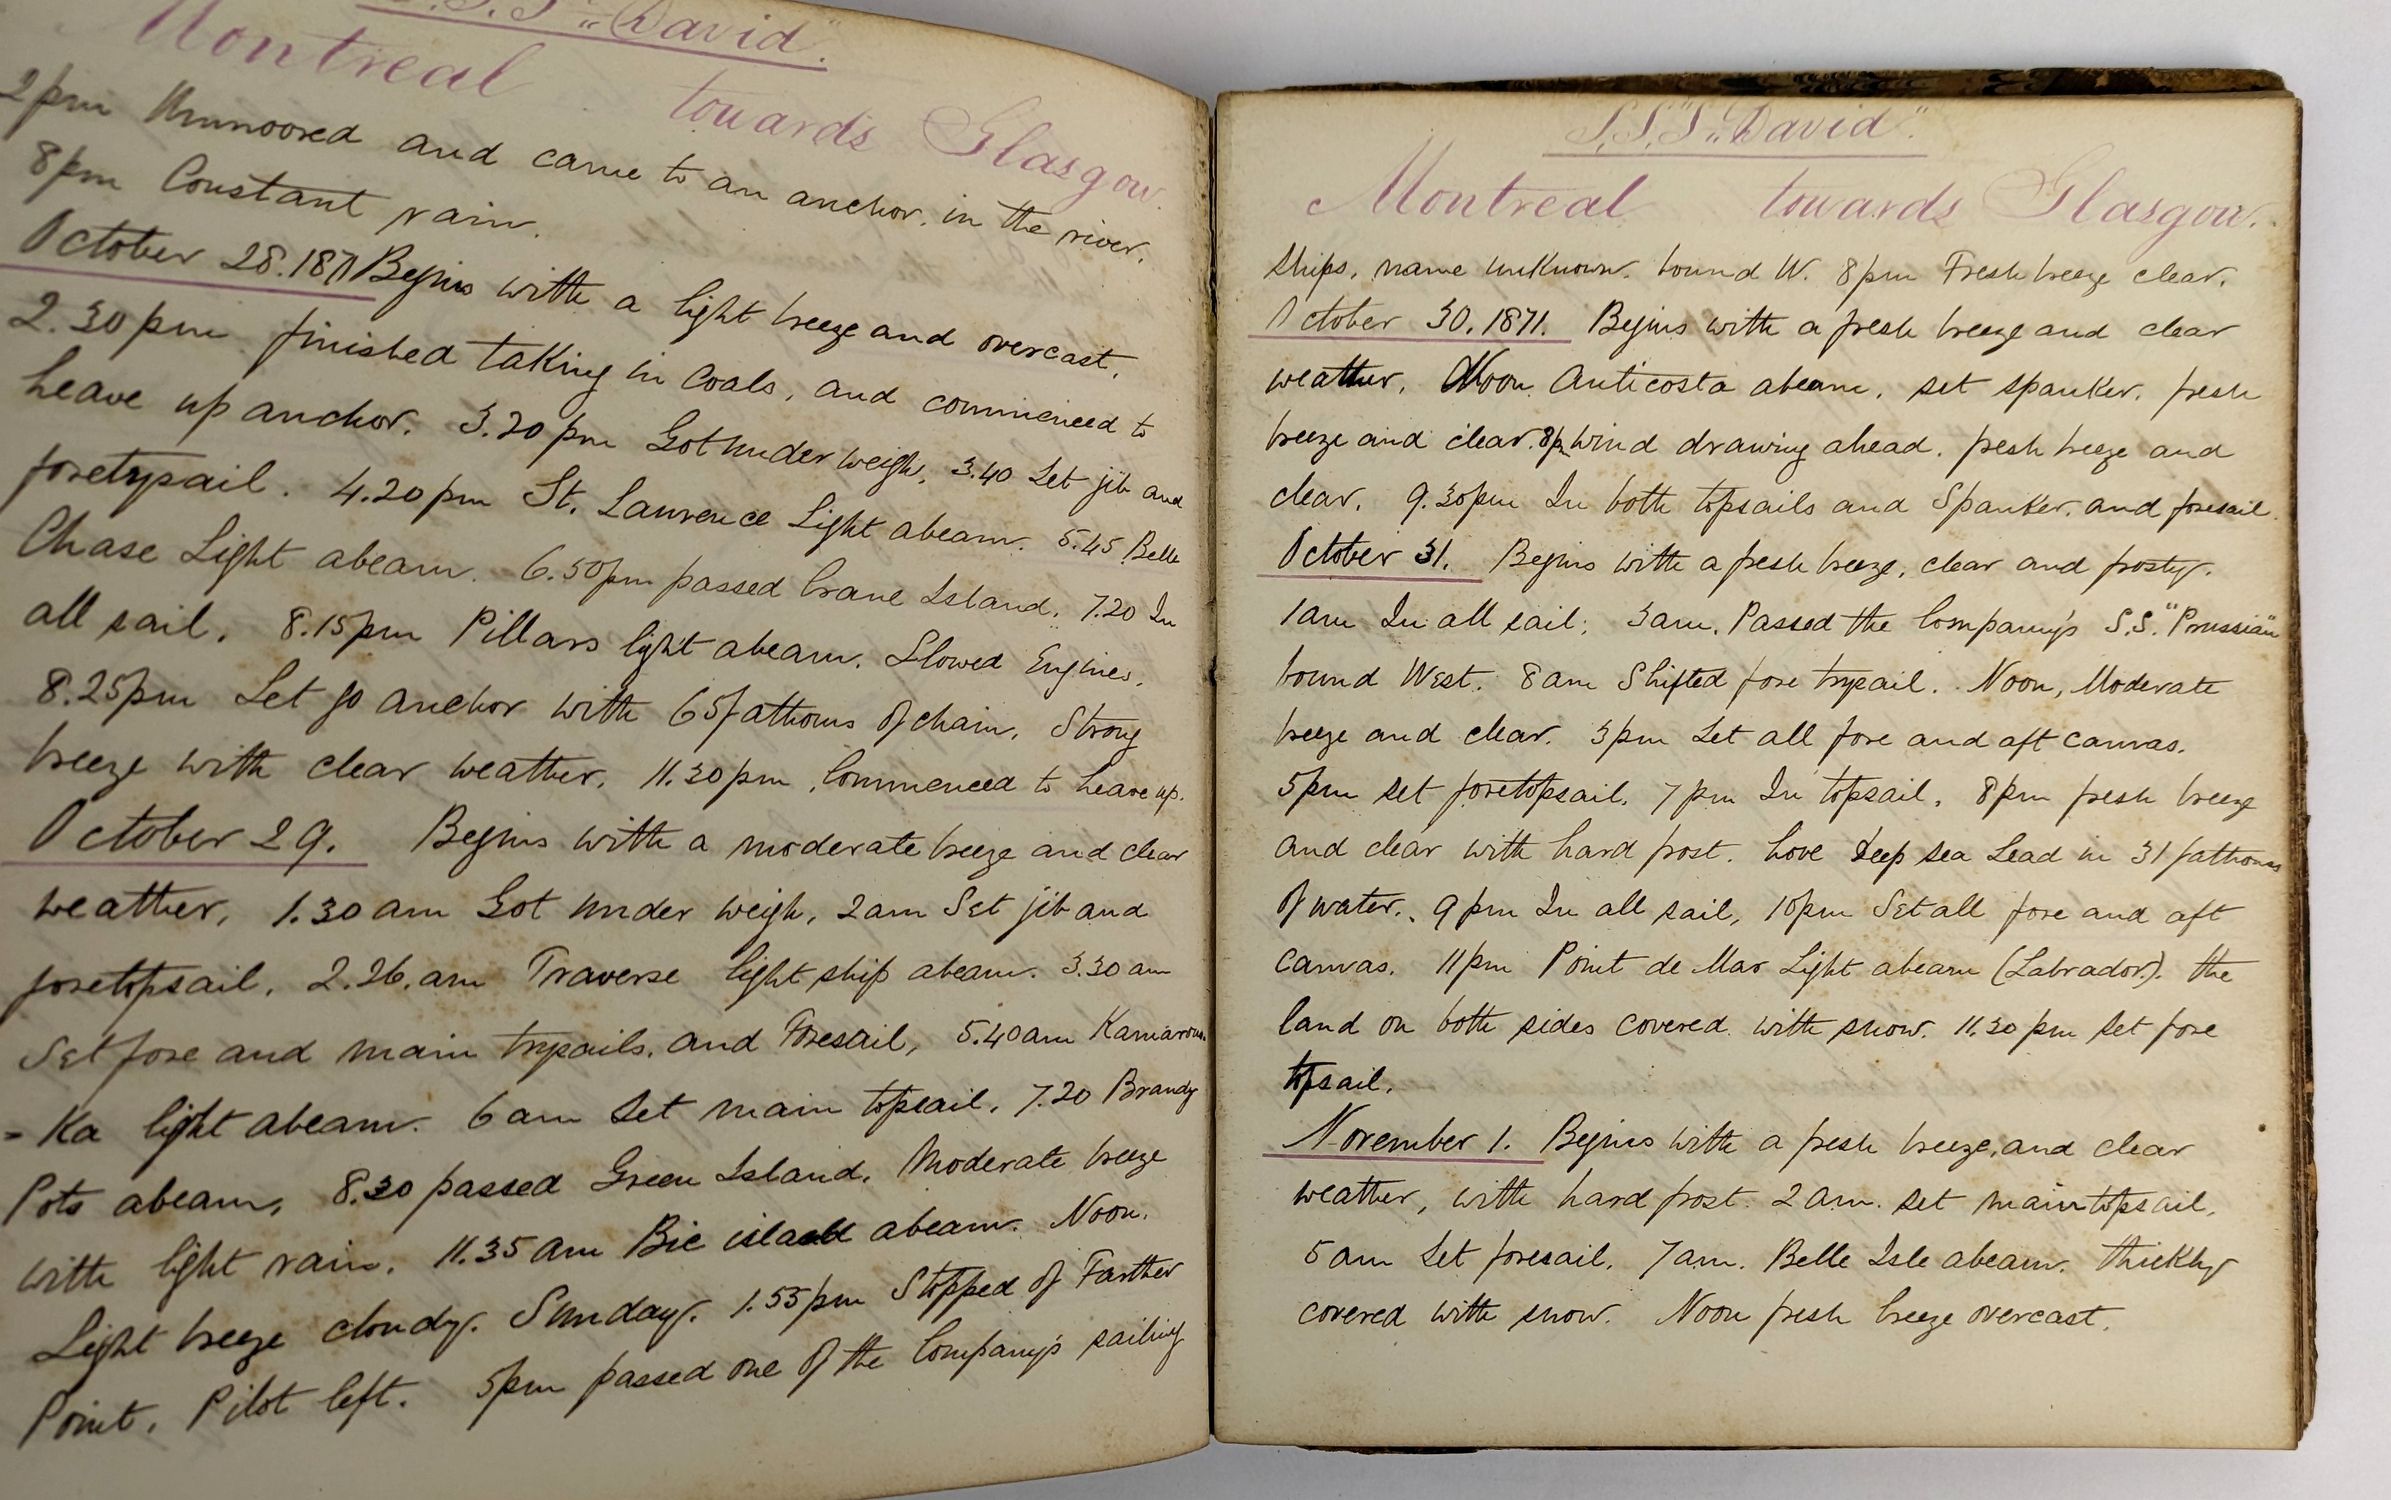 S.S. St. "David".
Montreal towards Glasgow.
2pm Unmoored and came to an anchor. in the river.
8pm Constant rain.
October 28. 1871 Begins with a light breeze and overcast.
2.30pm finished taking in coals, and commenced to
heave up anchor. 3.20pm Got under weigh, 3.40 Set jib and
foretrysail. 4.20pm St. Lawrence Light abeam. 5.45 Belle
Chase Light abeam. 6.50pm passed Crane Island. 7.20 In
all sail. 8.15pm Pillars light abeam. Slowed Engines.
8.25pm Let go anchor with 65 fathoms of chain. Strong
breeze with clear weather. 11.30pm Commenced to heave up.
October 29. Begins with a moderate breeze and clear
weather, 1.30am Got under weigh, 2am Set jib and
foretopsail, 2.26.am Traverse light ship abeam. 3.30 am
Set fore and main trysails. and Foresail, 5.40am Kamarous
= Ka light abeam. 6am Set main topsail. 7.20 Brandy
Pots abeam, 8.30 passed Green Island. Moderate breeze
with light rain. 11.35am Bic island abeam. Noon.
Light breeze cloudy. Sunday. 1.55pm Stopped of Farther
Point. Pilot left. 5pm passed one of the Company's sailing
S.S. St. "David".
Montreal towards Glasgow.
Ships, name unknown. bound W. 8pm Fresh breeze clear.
October 30. 1871. Begins with a fresh breeze and clear
weather. Noon. Anticosta abeam. set spanker. fresh
breeze and clear. 8p wind drawing ahead. fresh breeze and
clear. 9.30pm In both topsails and Spanker. and foresail.
October 31. Begins with a fresh breeze, clear and frosty.
1am In all sail; 3am. Passed the Company's S.S. "Prussian"
bound West. 8am Shifted fore trysail. Noon, Moderate
breeze and clear. 3pm Set all fore and aft canvas.
5pm set foretopsail. 7pm In topsail. 8pm fresh breeze
and clear with hard frost. hove Deep sea Lead in 31 fathoms
of water. 9pm In all sail, 10pm Set all fore and aft
canvas. 11pm Point de Mar Light abeam (Labrador). the
land on both sides covered with snow. 11.30pm set fore
topsail.
November 1. Begins with a fresh breeze, and clear
weather, with hard frost. 2am. set maintopsail,
5am Set foresail. 7am. Belle Isle abeam. thickly
covered with snow. Noon fresh breeze overcast.